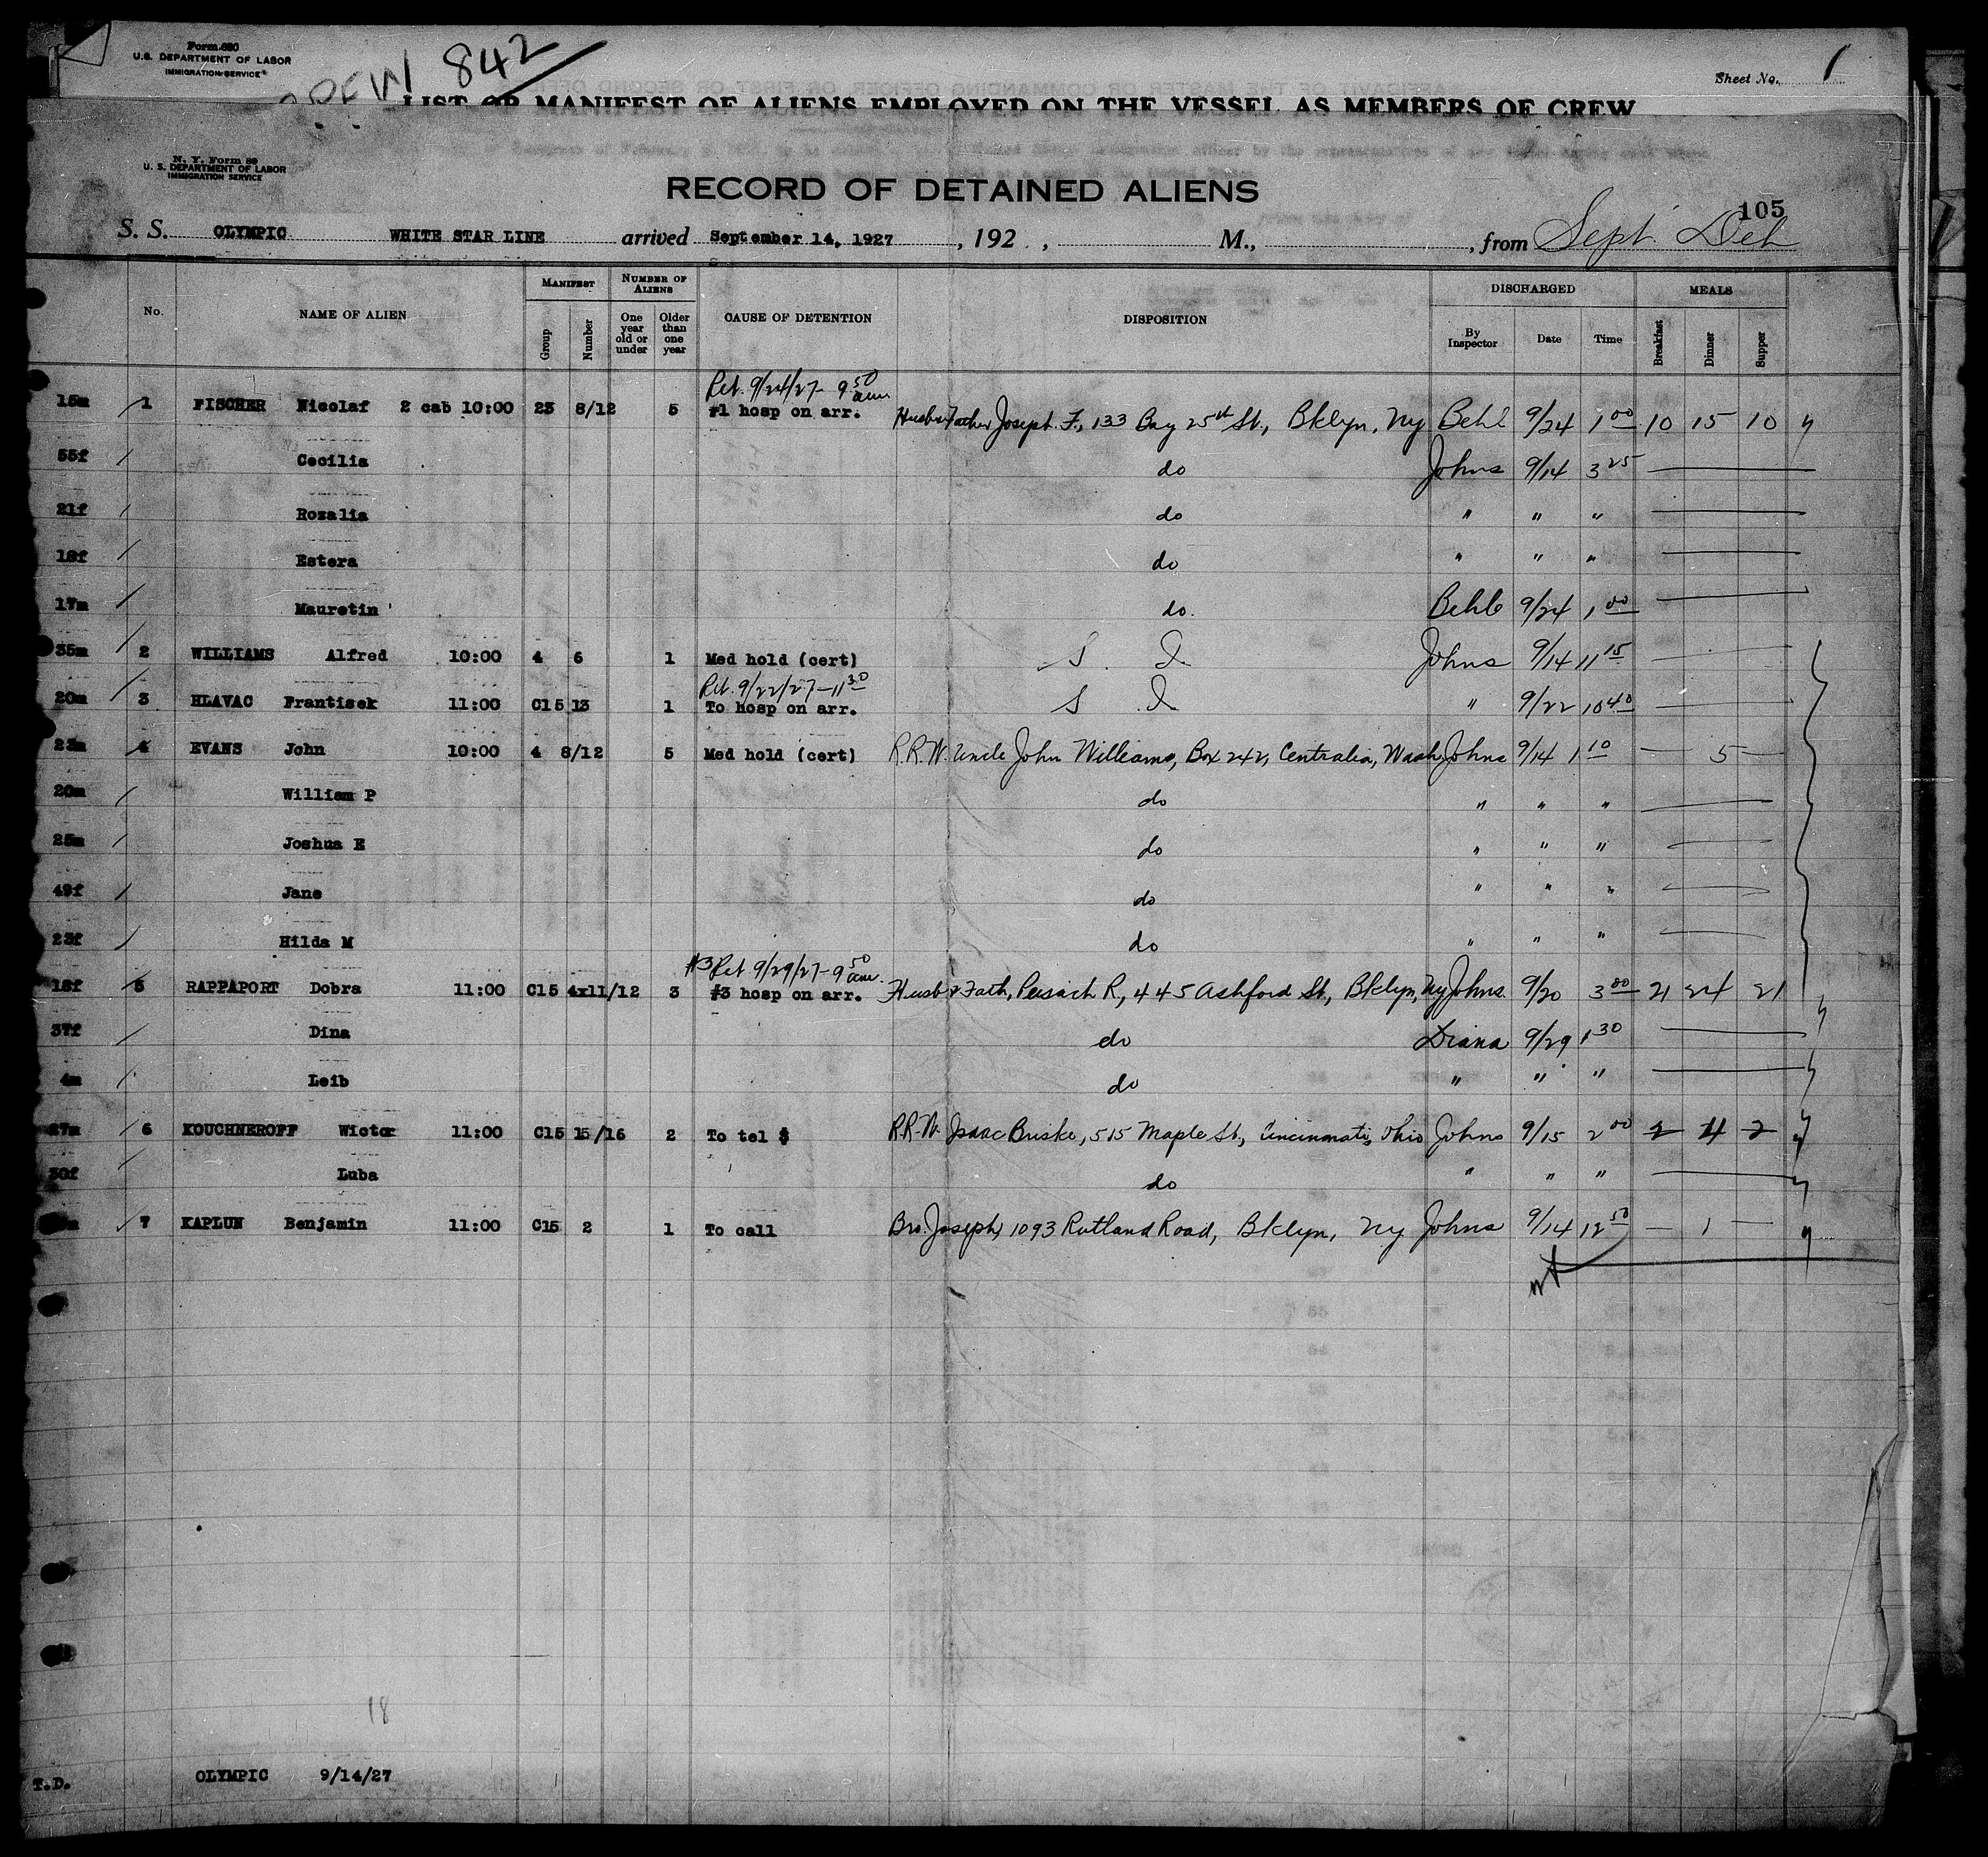 Form 680
U.S. DEPARTMENT OF LABOR
IMMIGRATION SERVICE
CREW 842
Sheet No. 1
LIST OR MANIFEST OF ALIENS EMPLOYED ON THE VESSEL AS MEMBERS OF CREW
N. Y. Form 89
U. S. DEPARTMENT OF LABOR
IMMIGRATION SERVICE
RECORD OF DETAINED ALIENS
105
S. S. OLYMPIC WHITE STAR LINE arrived September 14, 1927, 192 , M., from Sept Det
No. NAME OF ALIEN MANIFEST Group Number NUMBER OF ALIENS One year old or under Older than one year CAUSE OF DETENTION DISPOSITION DISCHARGED By Inspector Date Time MEALS Breakfast Dinner Supper
Ret. 9/24/27 - 9 50 am
15m 1 FISCHER Nicolaf 2 cab 10:00 23 8/12 5 #1 hosp on arr. Husb & Father Joseph F., 133 Bay 25th St., Bklyn, Ny Behl 9/24 1 00 10 15 10
55f Cecilia do Johns 9/14 3 25
21f Rozalia do " " "
18f Estera do " " "
17m Mauretin do. Behle 9/24 1 00
35m 2 WILLIAMS Alfred 10:00 4 6 1 Med hold (cert) S. I. Johns 9/14 11 15
Ret. 9/22/27 - 11 30
20m 3 HLAVAC Frantisek 11:00 C15 13 1 To hosp on arr. S I " 9/22 10 40
23m 4 EVANS John 10:00 4 8/12 5 Med hold (cert) R.R.W. Uncle John Williams, Box 242, Centralia, Wash Johns 9/14 1 10 — 5 —
20m William P do " " "
25m Joshua E do " " "
49f Jane do " " "
23f Hilda M do " " "
#3 Ret 9/29/27 - 9 50 am.
18f 5 RAPPAPORT Dobra 11:00 C15 4x11/12 3 #3 hosp on arr. Husb & Fath, Peisach R., 445 Ashford St., Bklyn, Ny Johns. 9/20 3 00 21 24 21
37f Dina do Diana 9/29 1 30
4m Leib do " " "
27m 6 KOUCHNEROFF Wictor 11:00 C15 15/16 2 To tel $ R.R.W. Isaac Briske, 515 Maple St., Cincinnati, Ohio Johns 9/15 2 00 2 4 2
30f Luba do " " "
7 KAPLUN Benjamin 11:00 C15 2 1 To call Bro. Joseph, 1093 Rutland Road, Bklyn, Ny Johns 9/14 12 50 — 1 —
18
T.D. OLYMPIC 9/14/27